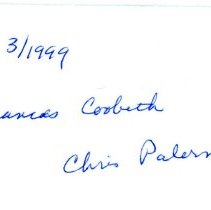 3/1999
ances Coobeth
Chris Palerm